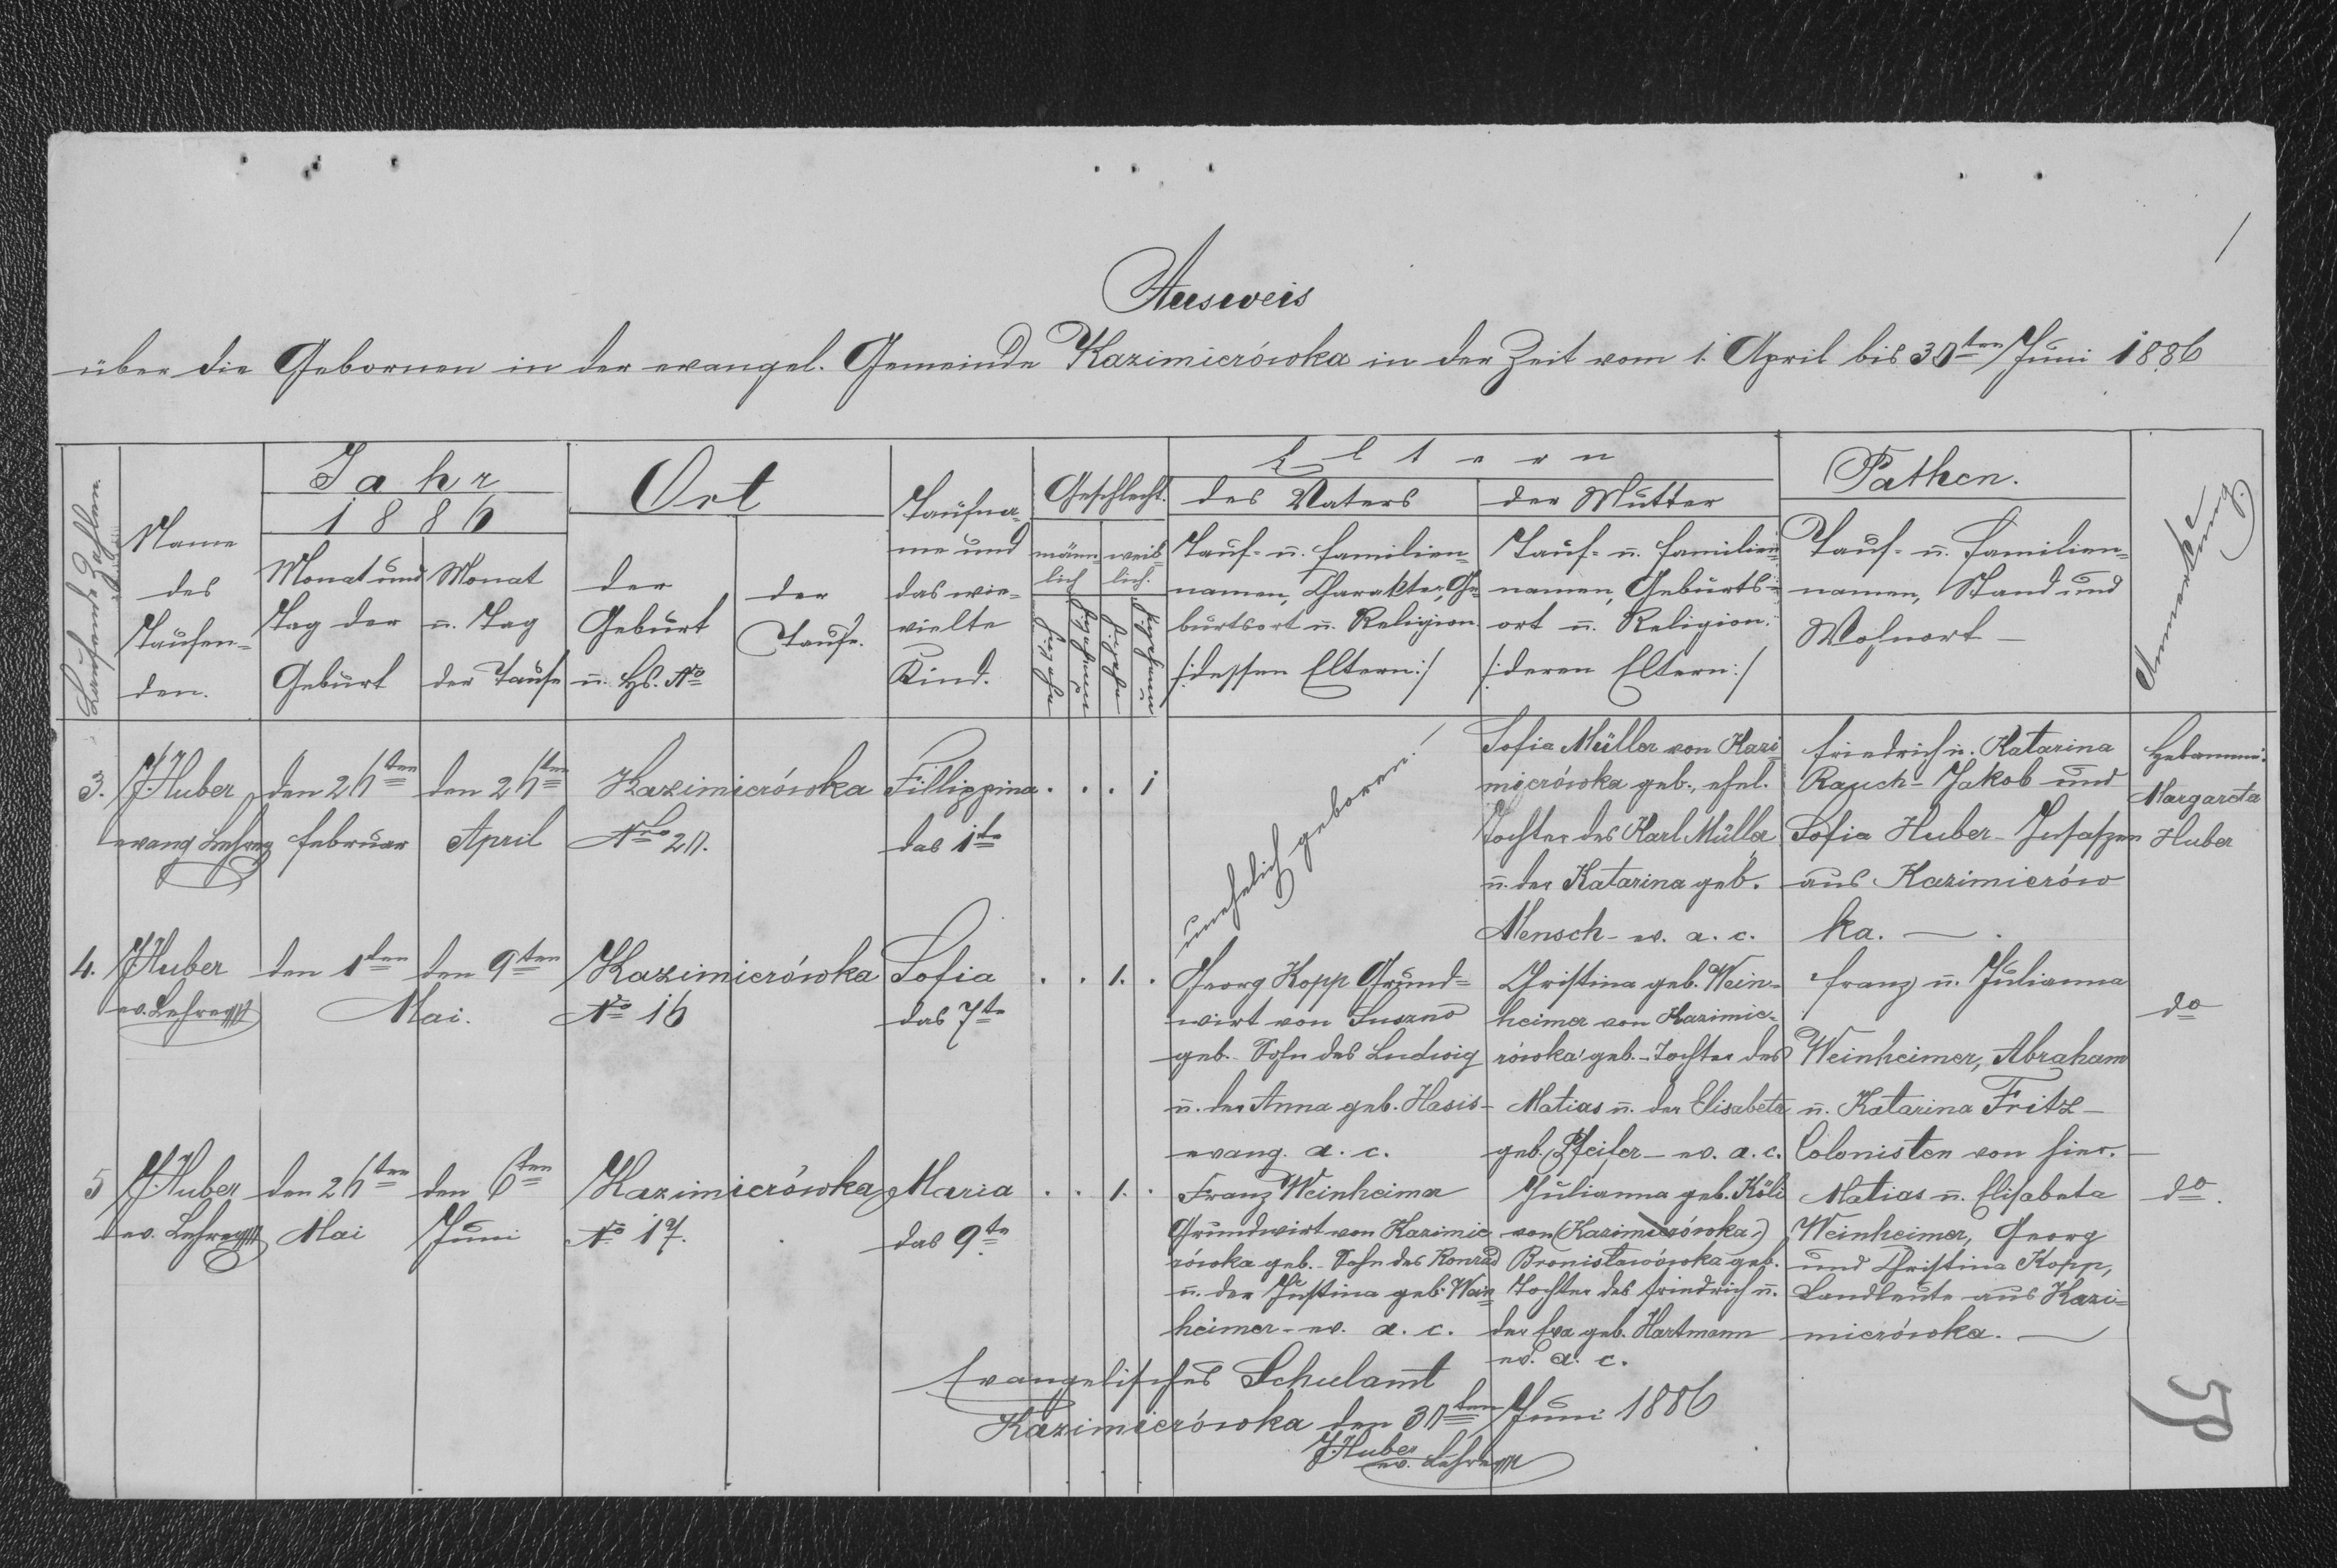 Ausweis
über die Gebornen in der evangel. Gemeinde Kazimierówka in der Zeit vom 1. April bis 30ten Juni 1886
Laufende Zahlen
Name
des
Taufen-
den.
Jahr
1886
Monat und
Tag der
Geburt
Monat
u. Tag
der Taufe
Ort
der
Geburt
u. Hs. No
der
Taufe.
Taufna-
me und
das wie-
vielte
Kind.
Geschlecht.
männ-
lich
weib-
lich.
Eltern
des Vaters
Tauf- u. Familien-
namen, Charakter, Ge-
burtsort u. Religion
/:dessen Eltern:/
der Mutter
Tauf- u. Familien-
namen, Geburts-
ort u. Religion.
/:deren Eltern:/
Pathen.
Tauf- u. Familien-
namen, Stand und
Wohnort –
Anmerkung.
3.
J. Huber
evang Lehrer
den 26ten
Februar
den 26ten
April
Kazimierówka
Nro 20.
Fillippina
das 1te
. . . 1
unehelich geboren!
Sofia Müller von Kazi
mierówka geb., ehel.
Tochter des Karl Müller
u. der Katarina geb.
Mensch - ev. a. c.
Friedrich u. Katarina
Rauch - Jakob und
Sofia Huber - Insaszen
aus Kazimierów
ka. –
Hebamme:
Margareta
Huber
4.
J. Huber
ev. Lehrer
den 1ten
den 9ten
Mai.
Kazimierówka
No 16
Sofia
das 7te
. . 1. .
Georg Kopp Grund-
wirt von Suszno
geb. Sohn des Ludwig
u. der Anna geb. Hasis -
evang. a. c.
Christina geb. Wein-
heimer von Kazimie-
rówka geb. - Tochter des
Matias u. der Elisabeta
geb. Pfeifer - ev. a. c.
Franz u. Julianna
Weinheimer, Abraham
u. Katarina Fritz -
Colonisten von hier. –
do
5
J. Huber
ev. Lehrer
den 26ten
Mai
den 6ten
Juni
Kazimierówka
No 17.
Maria
das 9te
. . 1. .
Franz Weinheimer
Grundwirt von Kazimie
rówka geb. - Sohn des Konrad
u. der Justina geb. Wein-
heimer - ev. a. c.
Julianna geb. Köli
von (Kazimierówka)
Bronisławówka geb.
Tochter des Friedrich u.
der Eva geb. Hartmann
ev. a. c.
Matias u. Elisabeta
Weinheimer, Georg
und Christina Kopp,
Landleute aus Kazi-
mierówka. –
do.
Evangelisches Schulamt
Kazimierówka den 30ten Juni 1886
J. Huber
ev. Lehrer